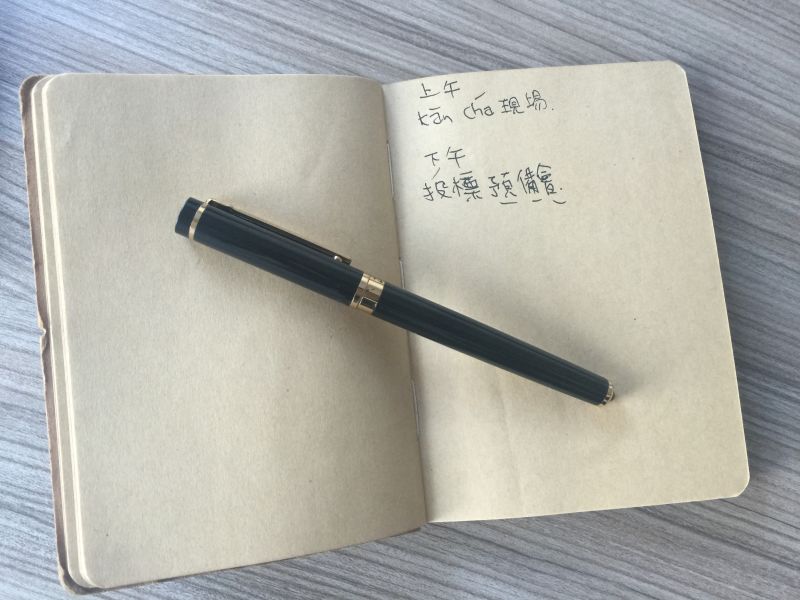 上午
kān chá 現場.
下午
投標預備會.